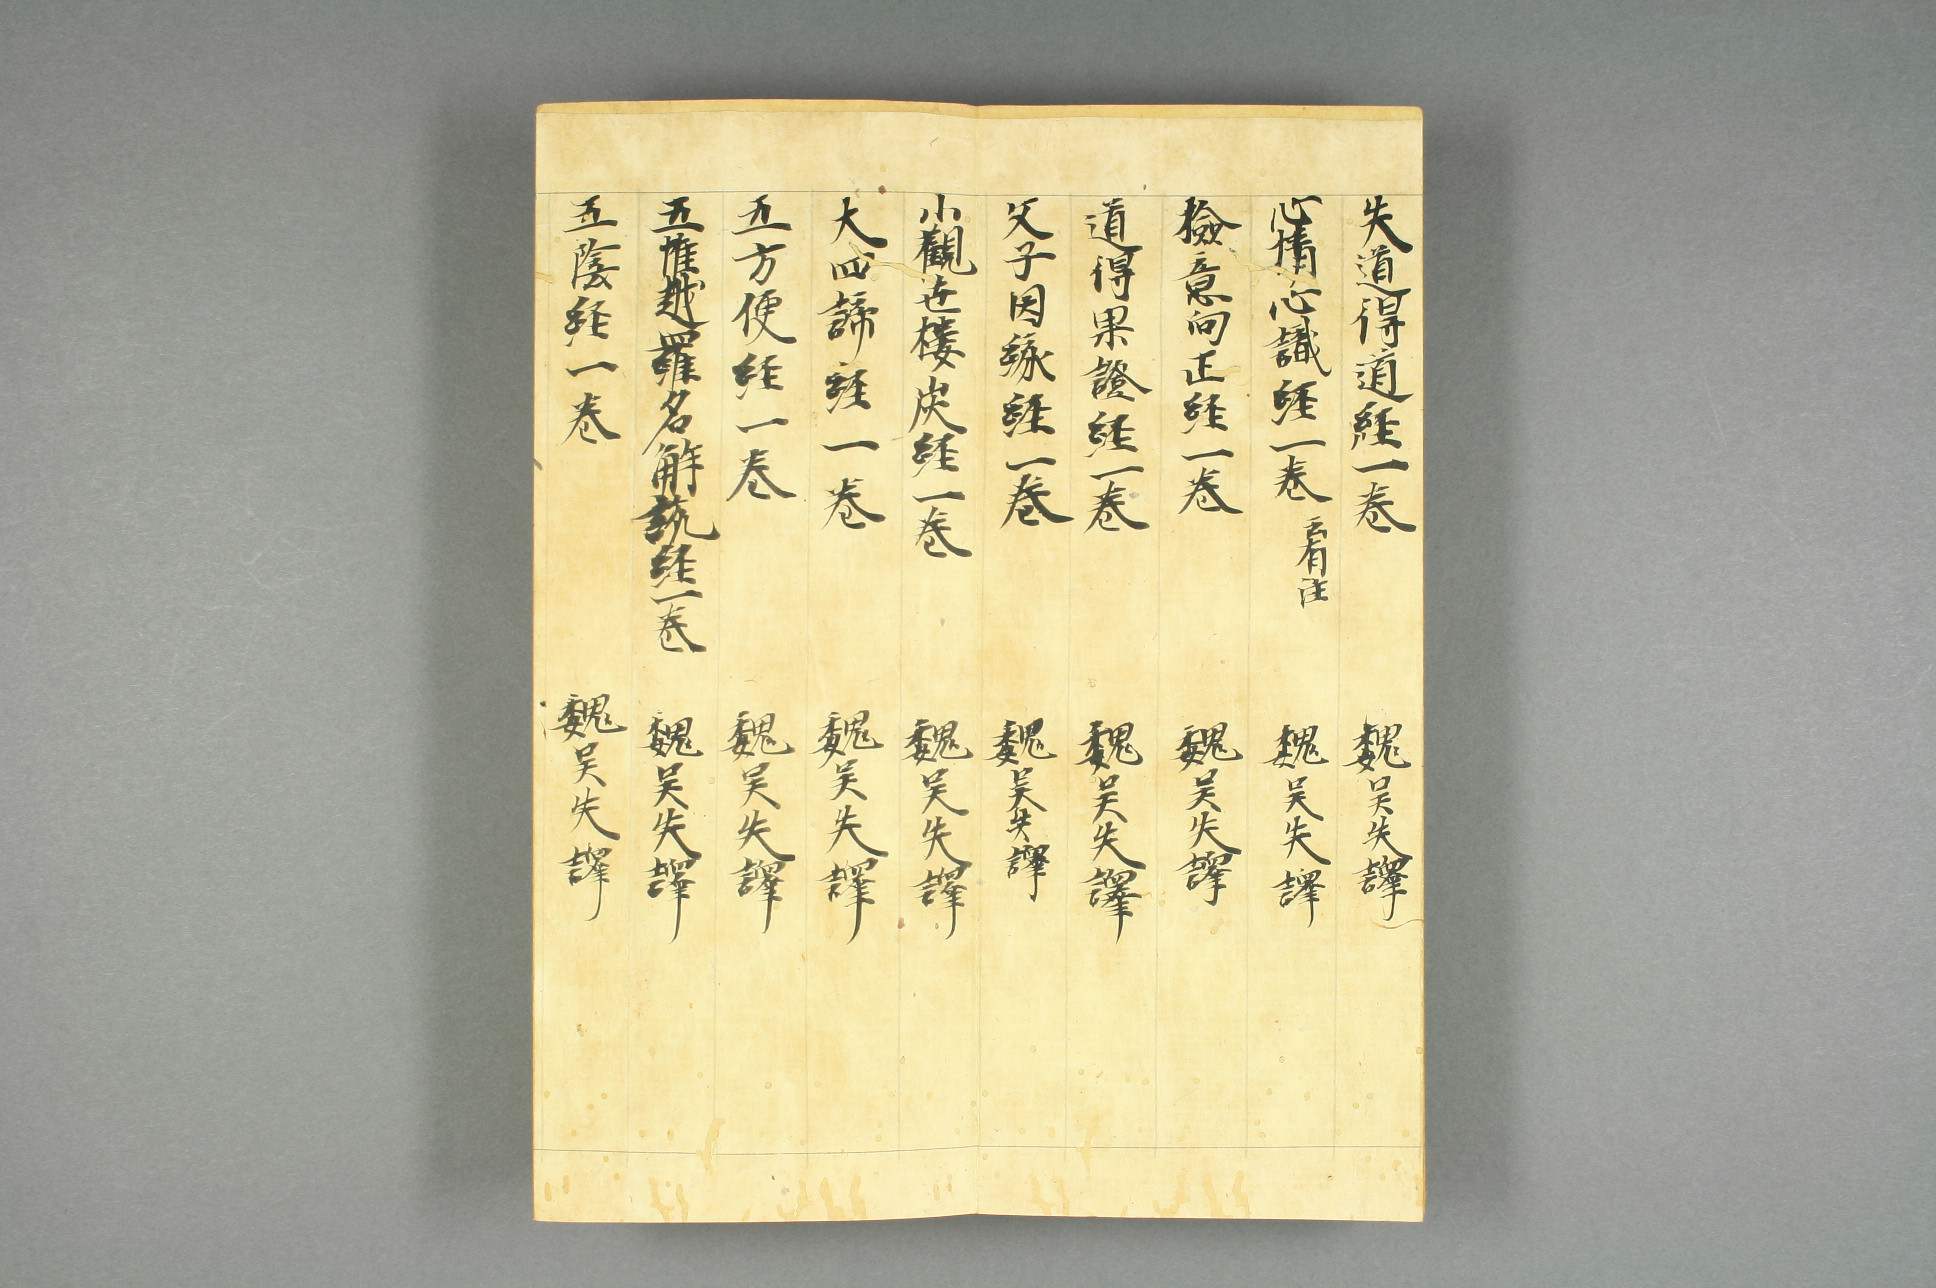 失道得道經一卷　魏吴失譯
心情心識經一卷 云有注　魏吴失譯
檢意向正經一卷　魏吴失譯
道得果證經一卷　魏吴失譯
父子因縁經一卷　魏吴失譯
小觀世樓炭經一卷　魏吴失譯
大四諦經一卷　魏吴失譯
五方便經一卷　魏吴失譯
五惟越羅名解説經一卷　魏吴失譯
五陰經一卷　魏吴失譯